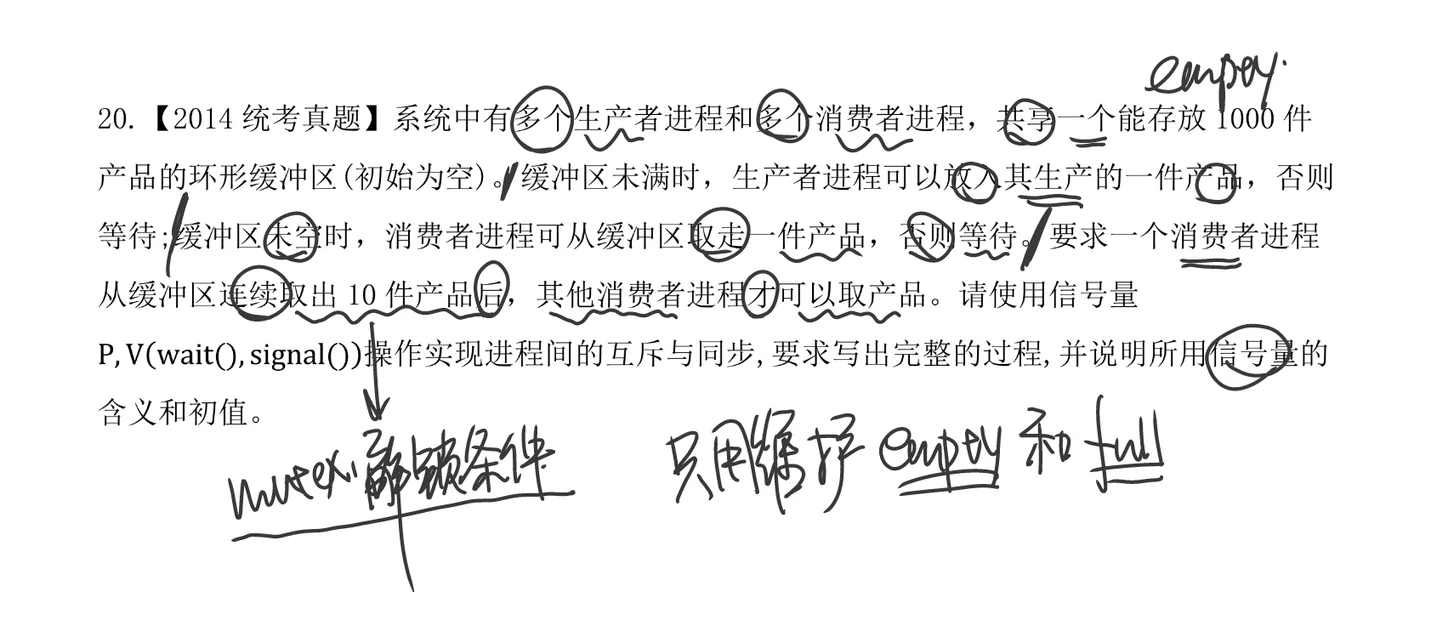 empty.
20.【2014 统考真题】系统中有多个生产者进程和多个消费者进程，共享一个能存放 1000 件
产品的环形缓冲区(初始为空)。缓冲区未满时，生产者进程可以放入其生产的一件产品，否则
等待;缓冲区未空时，消费者进程可从缓冲区取走一件产品，否则等待。要求一个消费者进程
从缓冲区连续取出 10 件产品后，其他消费者进程才可以取产品。请使用信号量
P, V(wait(), signal())操作实现进程间的互斥与同步,要求写出完整的过程,并说明所用信号量的
含义和初值。
mutex1 解锁条件 只用维护 empty 和 full